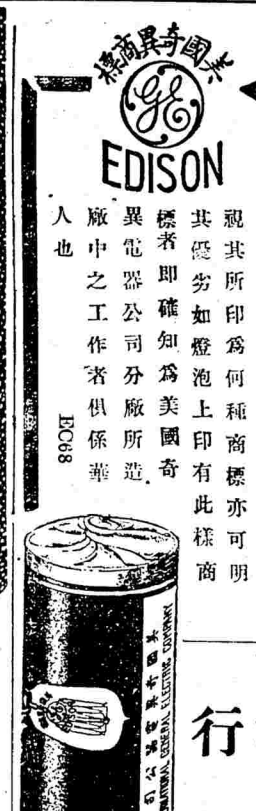 美國奇異商標
GE
EDISON
視其所印爲何種商標亦可明
其優劣如燈泡上印有此樣商
標者即確知爲美國奇
異電器公司分廠所造
廠中之工作者俱係華
人也
EC68
美國奇異電器公司
INTERNATIONAL GENERAL ELECTRIC COMPANY
行